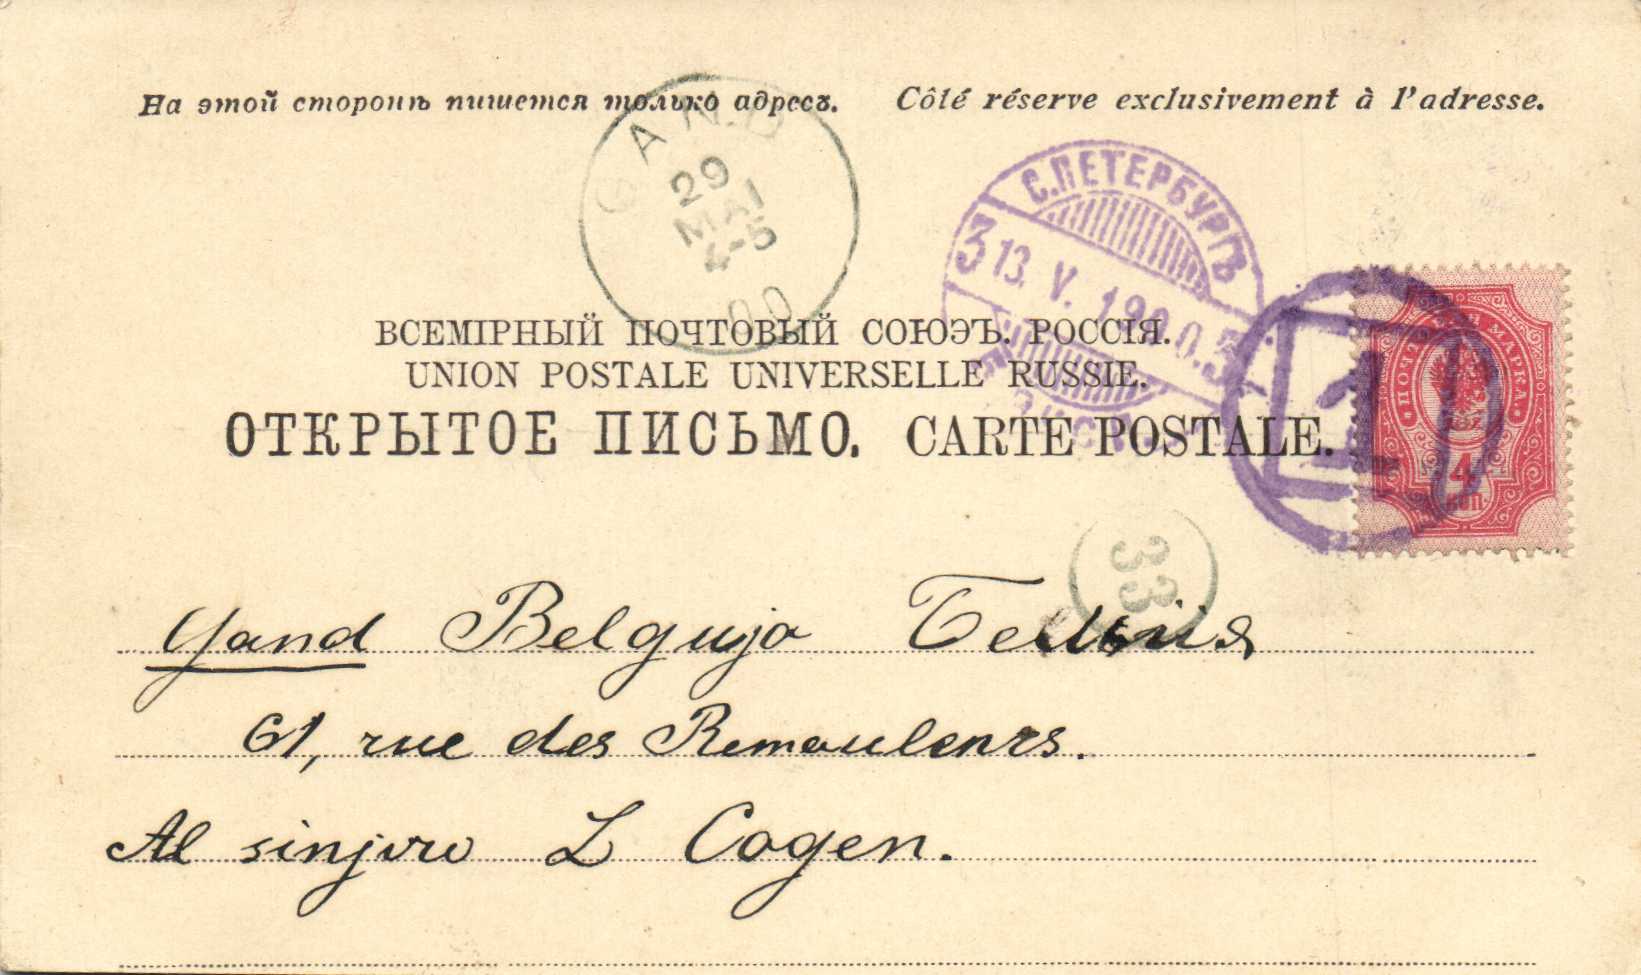 На этой сторонѣ пишется только адресъ. Côté réserve exclusivement à l'adresse.
GAND
29
MAI
4-5
00
С.ПЕТЕРБУРГЪ
3 13. V. 1900.
ВСЕМІРНЫЙ ПОЧТОВЫЙ СОЮЭЪ. РОССІЯ.
UNION POSTALE UNIVERSELLE RUSSIE.
ОТКРЫТОЕ ПИСЬМО. CARTE POSTALE.
1
ПОЧТОВАЯ МАРКА
4
КОП.
33
Gand Belgujo
61, rue des Remouleurs.
Al sinjoro L Cogen.